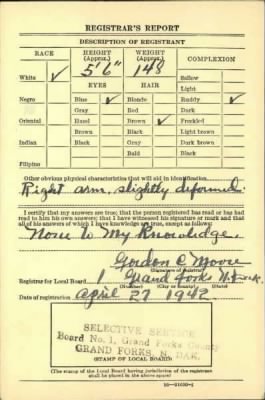 REGISTRAR'S REPORT
DESCRIPTION OF REGISTRANT
RACE HEIGHT (Approx.) WEIGHT (Approx.) COMPLEXION
5'6" 148
White ✓ Sallow
EYES HAIR Light
Negro Blue ✓ Blonde Ruddy ✓
Gray Red Dark
Oriental Hazel Brown ✓ Freckled
Brown Black Light brown
Indian Black Gray Dark brown
Bald Black
Filipino
Other obvious physical characteristics that will aid in identification
Right arm, slightly deformed.
I certify that my answers are true; that the person registered has read or has had
read to him his own answers; that I have witnessed his signature or mark and that
all of his answers of which I have knowledge are true, except as follows:
None to My Knowledge.
Gordon C Moore
(Signature of registrar)
Registrar for Local Board 1 Grand Forks N. Dak.
(Number) (City or county) (State)
Date of registration April 27 1942
SELECTIVE SERVICE
Board No. 1, Grand Forks County
GRAND FORKS, N. DAK.
(STAMP OF LOCAL BOARD)
(The stamp of the Local Board having jurisdiction of the registrant
shall be placed in the above space)